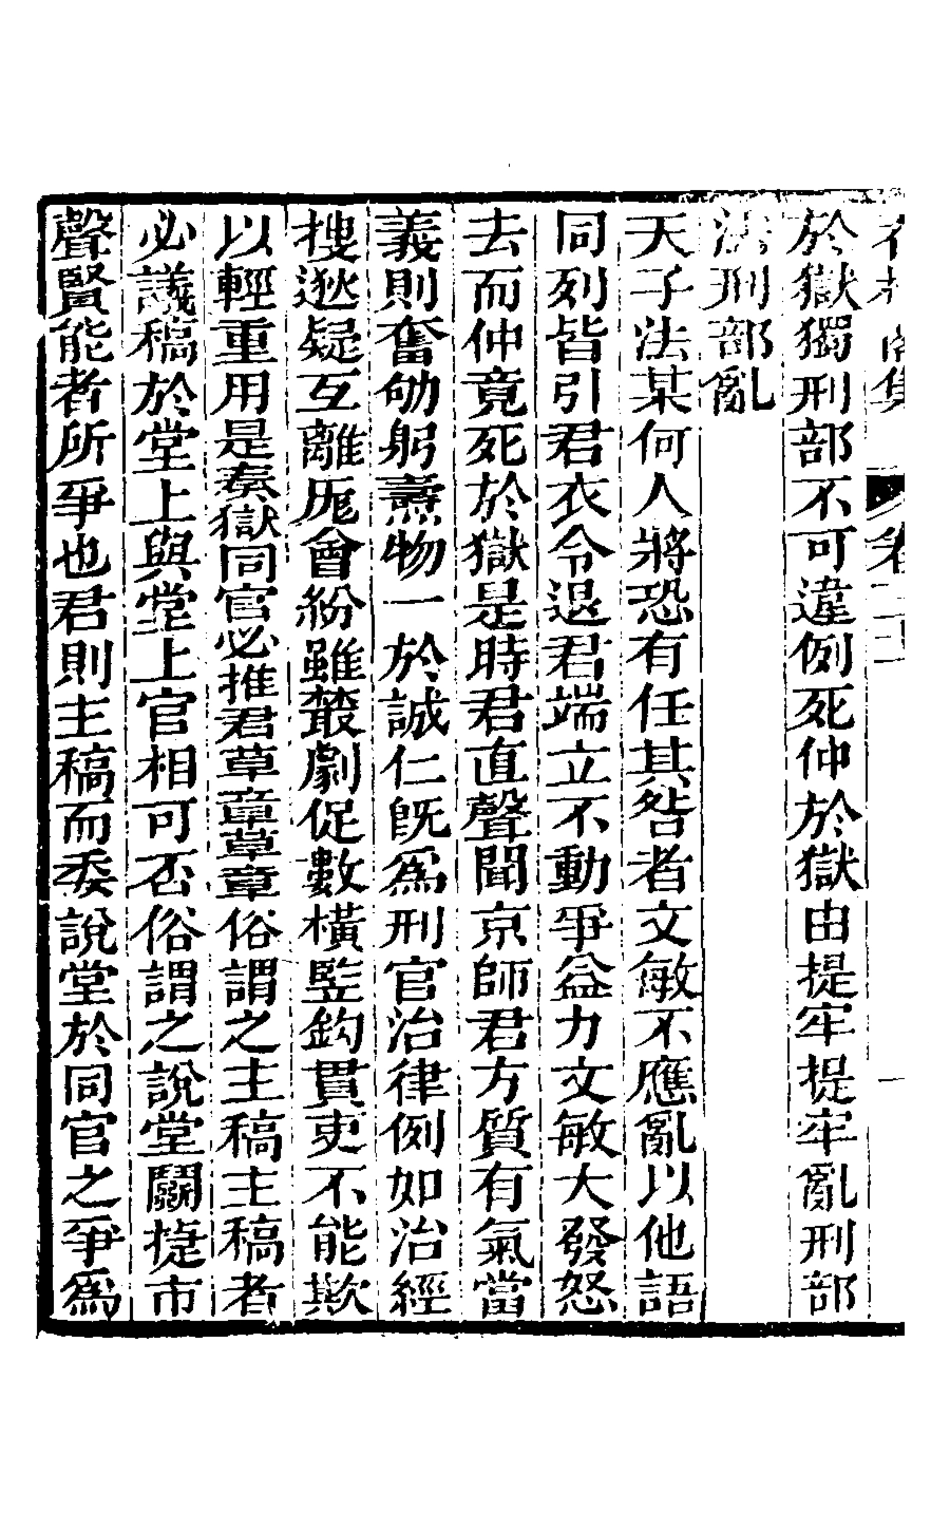 卷二十
於獄獨刑部不可違例死仲於獄由提牢提牢亂刑部
法刑部亂
天子法某何人將恐有任其咎者文敏不應亂以他語
同列皆引君衣令退君端立不動爭益力文敏大發怒
去而仲竟死於獄是時君直聲聞京師君方質有氣當
義則奮劬躬燾物一於誠仁既爲刑官治律例如治經
搜逖疑互離厖會紛雖叢劇促數橫監鈎貫吏不能欺
以輕重用是奏獄同官必推君草章草章俗謂之主稿主稿者
必議稿於堂上與堂上官相可否俗謂之說堂鬭捷市
聲賢能者所爭也君則主稿而委說堂於同官之爭爲